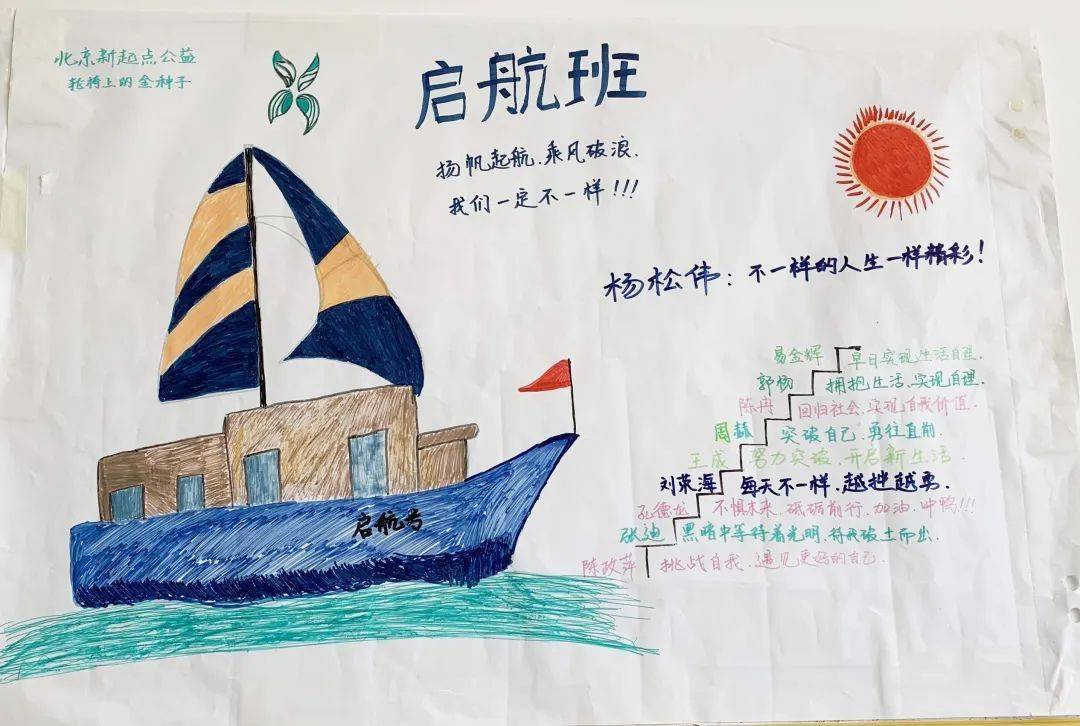 北京新起点公益
轮椅上的金种子
启航班
扬帆起航、乘风破浪、
我们一定不一样!!!
杨松伟:不一样的人生一样精彩!
易金辉 早日实现生活自理.
郭杨 拥抱生活、实现自理.
陈冉 回归社会、实现自我价值.
周赫 突破自己、勇往直前.
王成 努力突破、开启新生活.
刘荣海 每天不一样、越挫越勇.
孔德龙 不惧未来、砥砺前行、加油、冲鸭!!!
张迪 黑暗中等待着光明、待我破土而出.
陈改萍 挑战自我、遇见更好的自己.
启航号